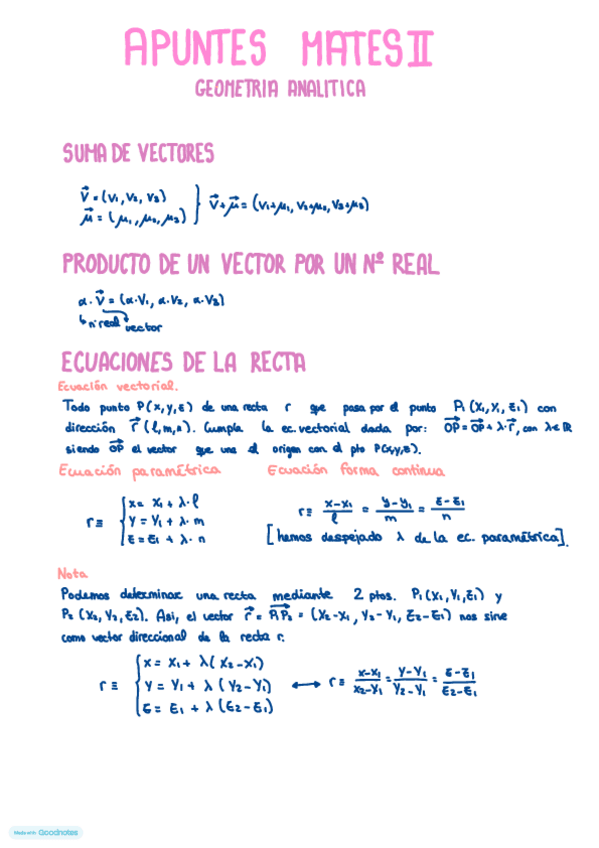 APUNTES MATES II
GEOMETRIA ANALITICA
SUMA DE VECTORES
v⃗ = (v₁, v₂, v₃)
μ⃗ = (μ₁, μ₂, μ₃) } v⃗+μ⃗ = (v₁+μ₁, v₂+μ₂, v₃+μ₃)
PRODUCTO DE UN VECTOR POR UN Nº REAL
α·v⃗ = (α·v₁, α·v₂, α·v₃)
↳ nº real vector
ECUACIONES DE LA RECTA
Ecuación vectorial.
Todo punto P(x,y,z) de una recta r que pasa por el punto P₁(x₁,y₁,z₁) con
dirección r⃗(l,m,n). Cumpla la ec. vectorial dada por: OP⃗ = OP⃗ + λ·r⃗, con λ∈ℝ
siendo OP⃗ el vector que une el origen con el pto P(x,y,z).
Ecuación paramétrica Ecuación forma continua
r ≡ { x = x₁ + λ·l
y = y₁ + λ·m
z = z₁ + λ·n
r ≡ (x-x₁)/l = (y-y₁)/m = (z-z₁)/n
[hemos despejado λ de la ec. paramétrica].
Nota
Podemos determinar una recta mediante 2 ptos. P₁(x₁,y₁,z₁) y
P₂(x₂,y₂,z₂). Asi, el vector r⃗ = P₁P₂⃗ = (x₂-x₁, y₂-y₁, z₂-z₁) nos sirve
como vector direccional de la recta r.
r ≡ { x = x₁ + λ(x₂-x₁)
y = y₁ + λ(y₂-y₁)
z = z₁ + λ(z₂-z₁)
⟷ r ≡ (x-x₁)/(x₂-x₁) = (y-y₁)/(y₂-y₁) = (z-z₁)/(z₂-z₁)
Made with Goodnotes